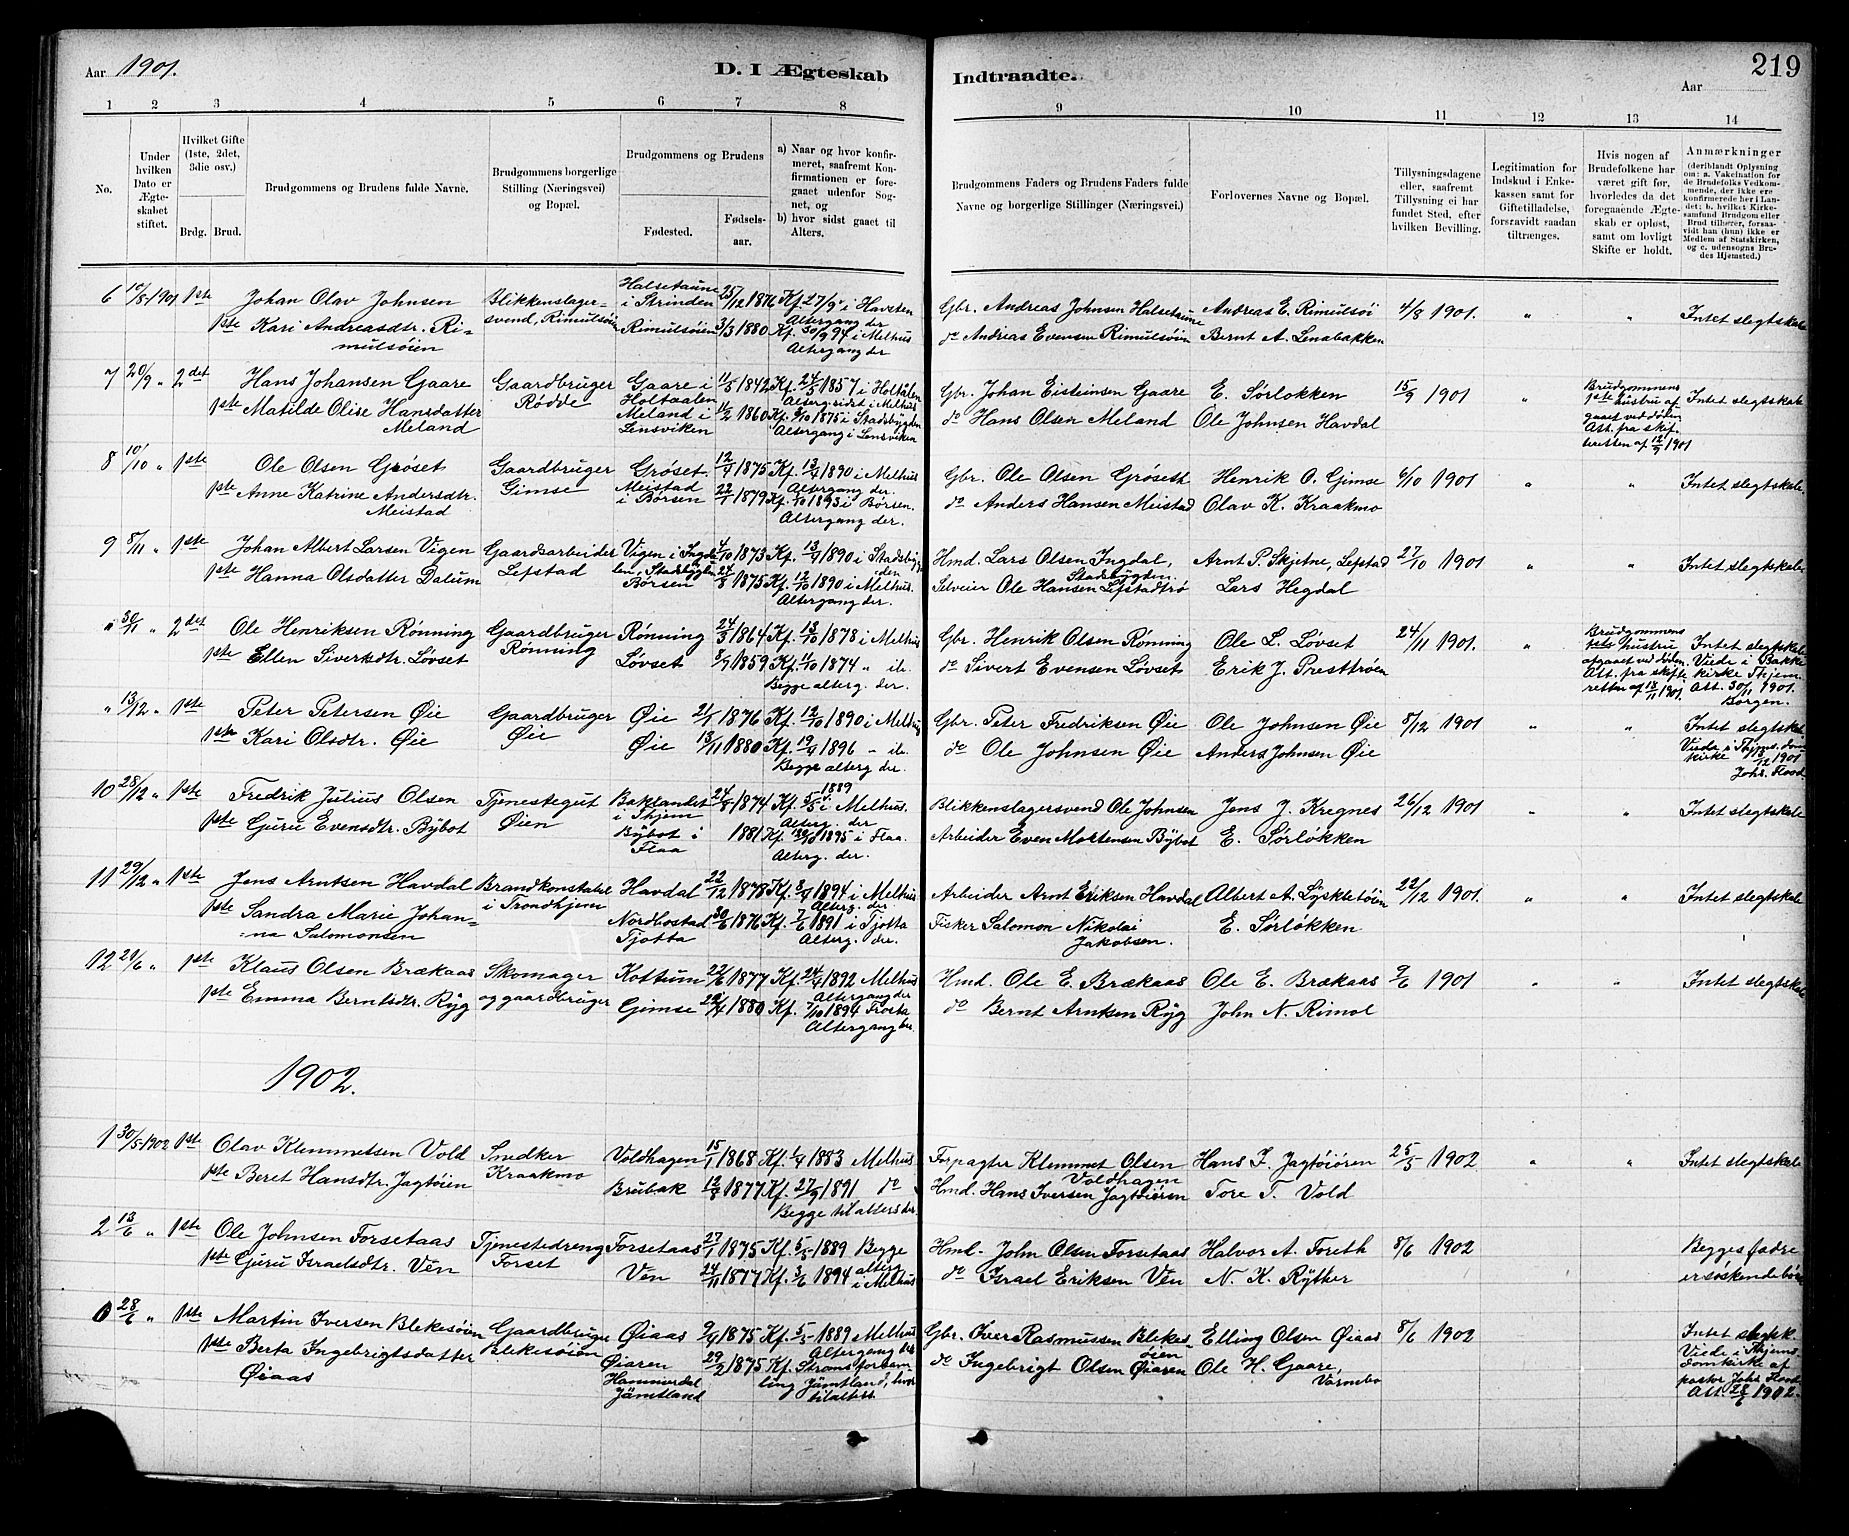 Aar 1901.
D. I Ægteskab
Indtraadte.
Aar
219
1 2 3 4 5 6 7 8
9 10 11 12 13 14
No.
Under hvilken Dato er Ægteskabet stiftet.
Hvilket Gifte (1ste, 2det, 3die osv.)
Brdg. Brud.
Brudgommens og Brudens fulde Navne.
Brudgommens borgerlige Stilling (Næringsvei) og Bopæl.
Brudgommens og Brudens
Fødested.
Fødselsaar.
a) Naar og hvor konfirmeret, saafremt Konfirmationen er foregaaet udenfor Sognet, og
b) hvor sidst gaaet til Alters.
Brudgommens Faders og Brudens Faders fulde Navne og borgerlige Stillinger (Næringsvei.)
Forlovernes Navne og Bopæl.
Tillysningsdagene eller, saafremt Tillysning ei har fundet Sted, efter hvilken Bevilling.
Legitimation for Indskud i Enkekassen samt for Giftetilladelse, forsaavidt saadan tiltrænges.
Hvis nogen af Brudefolkene har været gift før, hvorledes da det foregaaende Ægteskab er opløst, samt om lovligt Skifte er holdt.
Anmærkninger (deriblandt Oplysning om: a. Vakcination for de Brudefolks Vedkommende, der ikke ere konfirmerede her i Landet; b. hvilket Kirkesamfund Brudgom eller Brud tilhører, forsaavidt han (hun) ikke er Medlem af Statskirken, og c. udensogns Brudes Hjemsted.)
6 10/8 1901 1ste Johan Olav Johnsen Blikkenslagersvend, Rimulsøien Halsetaune i Strinden 25/12 1876 Kf. 27/9 i Havsten Altergang der
1ste Kari Andreasdtr. Rimulsøien Rimulsøien 3/3 1880 Kf. 30/9 94 i Melhus Altergang der
Gbr. Andreas Johnsen Halsetaune Andreas E. Rimulsøi 4/8 1901. " " Intet slegtskab
do Andreas Evensen Rimulsøin Bernt A. Lenabakken
7 20/9 " 2det Hans Johansen Gaare Gaardbruger Rødde Gaare i Holtaalen 11/5 1842 Kf. 24/5 1857 i Holtålen Alterg. sidst i Melhus
1ste Matilde Olise Hansdatter Meland Meland i Lensviken 11/2 1860 Kf. 9/10 1875 i Stadsbygden Altergang i Lensviken
Gbr. Johan Eisteinsen Gaare E. Sørløkken 15/9 1901 " Brudgommens 1ste hustru afgaaet ved døden Att. fra skifteretten af 12/9 1901 Intet slegtskab
do Hans Olsen Meland Ole Johnsen Havdal
8 10/10 " 1ste Ole Olsen Grøset Gaardbruger Gimse Grøset 12/9 1875 Kf. 13/9 1890 i Melhus Altergang der.
1ste Anne Katrine Andersdtr. Meistad Meistad i Børsen 22/1 1879 Kf. 1/10 1893 i Børsen. Altergang der.
Gbr. Ole Olsen Grøseth Henrik O. Gimse 6/10 1901 " " Intet slegtskab
do Anders Hansen Meistad Olav K. Kraakmo
9 8/11 " 1ste Johan Albert Larsen Vigen Gaardsarbeider Lefstad Vigen i Ingdalen, Stadsbygden 4/10 1873 Kf. 13/9 1890 i Stadsbygden
1ste Hanna Olsdatter Dalum Børsen 24/8 1875 Kf. 12/10 1890 i Melhus. Altergang der.
Hmd. Lars Olsen Ingdal, Stadsbygden. Arnt P. Skjetne, Lefstad 27/10 1901 " " Intet slegtskab
Selveier Ole Hansen Lefstadtrø Lars Hegdal
" 30/11 " 2det Ole Henriksen Rønning Gaardbruger Rønning Rønning 24/3 1864 Kf. 13/10 1878 i Melhus
1ste Ellen Siversdtr. Løvset Løvset 8/7 1859 Kf. 11/10 1874 " ib. Begge alterg. der.
Gbr. Henrik Olsen Rønning Ole L. Løvset 24/11 1901. " Brudgommens hustru afgaaet ved døden. Att. fra skifteretten af 18/11 1901. Intet slegtskab Viede i Bakke kirke Thjem. Att. 30/11 1901. Børgen.
do Sivert Evensen Løvset Erik J. Presttrøen
" 13/12 " 1ste Peter Petersen Øie Gaardbruger Øie Øie 21/1 1876 Kf. 12/10 1890 i Melhus
1ste Kari Olsdtr. Øie Øie 13/11 1880 Kf. 19/9 1896 " ib. Begge alterg der.
Gbr. Peter Fredriksen Øie Ole Johnsen Øie 8/12 1901 " " Intet slegtskab Viede i Thjems domkirke 13/12 1901 Johs. Flood
do Ole Johnsen Øie Anders Johnsen Øie
10 28/12 " 1ste Fredrik Julius Olsen Tjenestegut Øien Baklandet i Thjem 24/8 1874 Kf. 5/5 1889 i Melhus. Alterg. der
1ste Guru Evensdtr. Bybot Bybot i Flaa 1881 Kf. 13/10 1895 i Flaa. Alterg. der.
Blikkenslagersvend Ole Johnsen Jens J. Kregnes 26/12 1901 " " Intet slegtskab
Arbeider Even Mortensen Bybot E. Sørløkken
11 29/12 " 1ste Jens Arntsen Havdal Brandkonstabel i Trondhjem Havdal 22/12 1878 Kf. 3/9 1894 i Melhus Alterg. der.
1ste Sandra Marie Johanna Salomonsen Nordbostad Tjotta 30/6 1876 Kf. 7/6 1891 i Tjotta Alterg. der.
Arbeider Arnt Eriksen Havdal Albert A. Lyskletøien 22/12 1901. " " Intet slegtskab
Fisker Salomon Nikolai Jakobsen. E. Sørløkken
12 21/6 " 1ste Klaus Olsen Brækaas Skomager og gaardbruger Kottum 22/6 1877 Kf. 24/9 1892 Melhus Altergang der
1ste Emma Berntsdtr. Ryg Gimse 28/4 1880 Kf. 7/10 1894 Frosta Altergang her
Hmd. Ole E. Brækaas Ole E. Brækaas 9/6 1901 " " Intet slegtskab
do Bernt Arntsen Ryg John N. Rimol
1902.
1 30/5 1902 1ste Olav Klemmetsen Vold Snedker Kraakmo Voldhagen 15/1 1868 Kf. 1/4 1883 Melhus
1ste Beret Hansdtr. Jagtøien Brubak 12/8 1877 Kf. 27/9 1891 do Begge til alters der.
Forpagter Klemmet Olsen Voldhagen Hans I. Jagtøiören 25/5 1902 " " Intet slegtskab
Hmd. Hans Iversen Jagtøiören Tore T. Vold
2 13/6 " 1ste Ole Johnsen Forsetaas Tjenestedreng Forset Forsetaas 27/1 1875 Kf. 5/5 1889 Begge alterg. i Melhus
1ste Guru Israelsdtr. Ven Ven 24/11 1877 Kf. 3/6 1894
Hmd. John Olsen Forsetaas Halvor A. Foreth 8/6 1902 Begges fædre er søskendebørn
do Israel Eriksen Ven N. K. Rytter
28/6 " 1ste Martin Iversen Blekesøien Gaardbruger Blekesøien Øiaas 9/9 1875 Kf. 5/5 1889 Melhus Altergang her
1ste Berta Ingebrigtsdatter Øiaas Øiaren Hammerdal Jämtland 29/2 1875 Kf. Strømsforsamling Jämtland, hvor tilalters
Gbr. Iver Rasmussen Blekesøien Elling Olsen Øiaas 8/6 1902 Intet slegtsk. Viede i Thjems domkirke af pastor Johs Flood Att. 28/6 1902.
do Ingebrigt Olsen Øiaren Ole H. Gaare, Varmbo